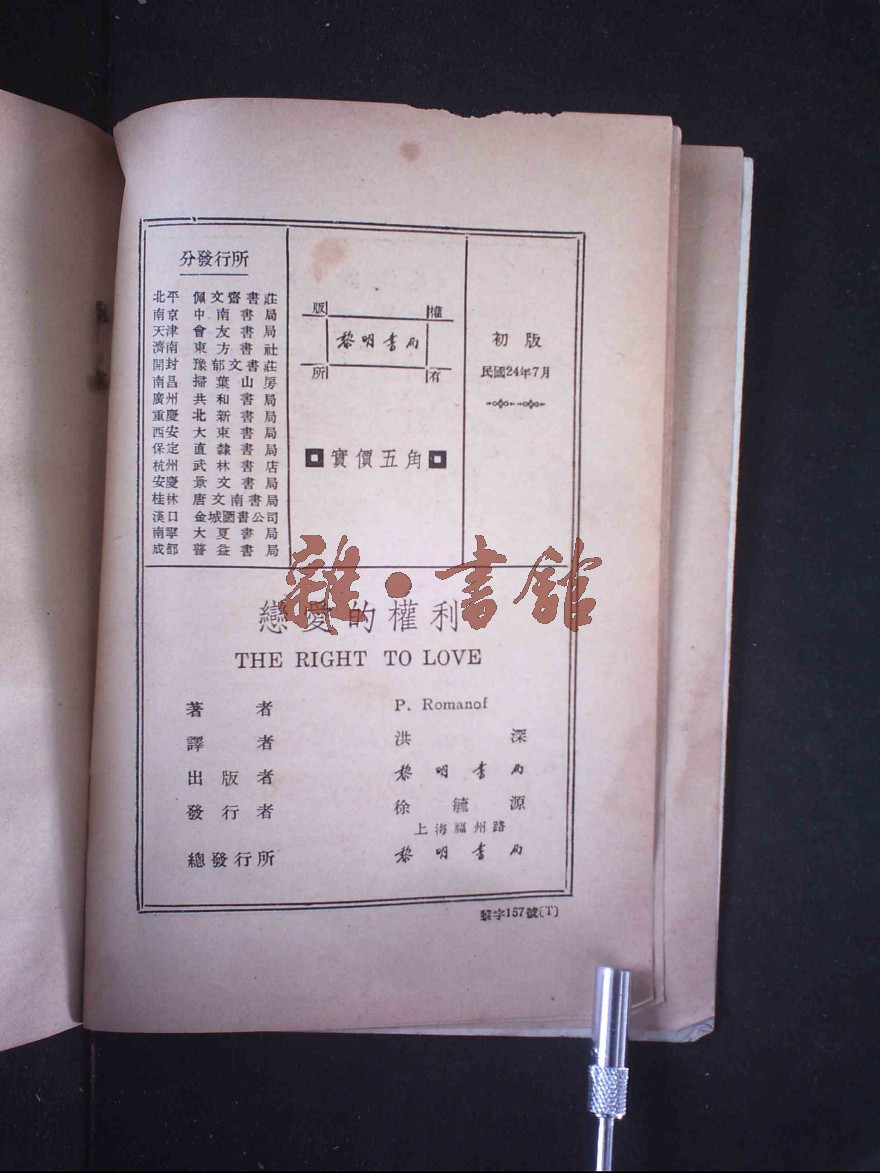 分發行所
北平 佩文齋書莊
南京 中南書局
天津 會友書局
濟南 東方書社
開封 豫郁文書莊
南昌 掃葉山房
廣州 共和書局
重慶 北新書局
西安 大東書局
保定 直隸書局
杭州 武林書店
安慶 景文書局
桂林 唐文南書局
漢口 金城圖書公司
南寧 大夏書局
成都 普益書局
版權
黎明書局
所有
實價五角
初版
民國24年7月
雜·書館
戀愛的權利
THE RIGHT TO LOVE
著者 P. Romanof
譯者 洪深
出版者 黎明書局
發行者 徐毓源
上海福州路
總發行所 黎明書局
黎字157號〔T〕